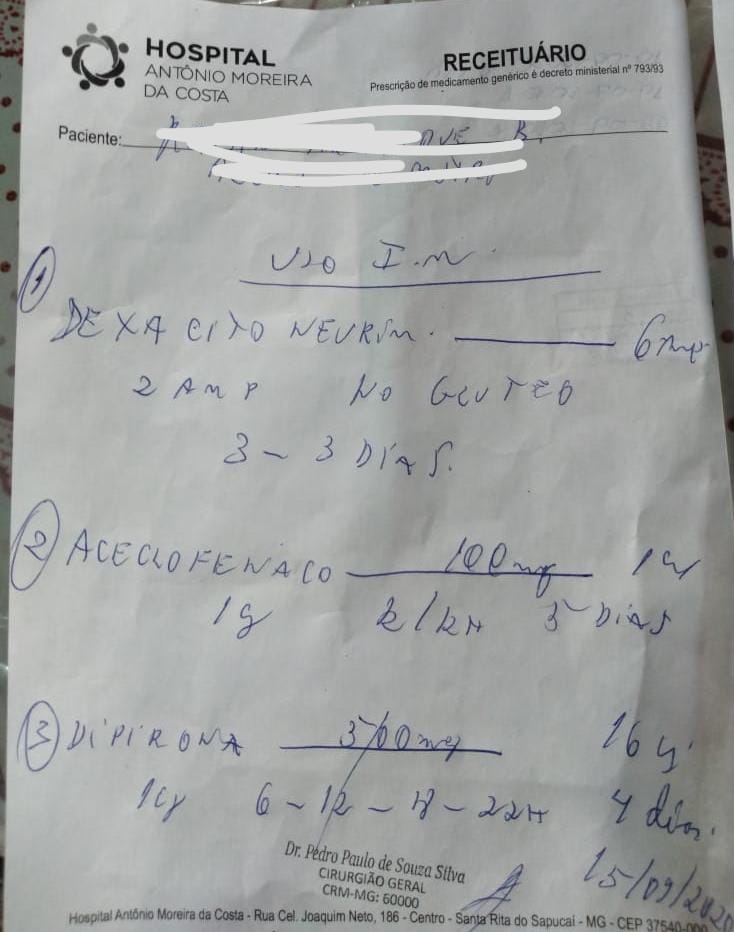 HOSPITAL
ANTÔNIO MOREIRA
DA COSTA
RECEITUÁRIO
Prescrição de medicamento genérico é decreto ministerial nº 793/93
Paciente:
USO I.M.
1
DEXA CITO NEURIM. 6 Amp
2 AMP NO GLUTEO
3 ~ 3 DIAS.
2 ACECLOFENACO 100mg
5 DIAS
3 DIPIRONA 500mg 16
6 ~ 12 ~ 18 ~ 22H 4 dias.
Dr. Pedro Paulo de Souza Silva
CIRURGIÃO GERAL
CRM-MG: 60000
15/09/2020
Hospital Antônio Moreira da Costa - Rua Cel. Joaquim Neto, 186 - Centro - Santa Rita do Sapucaí - MG - CEP 37540-000